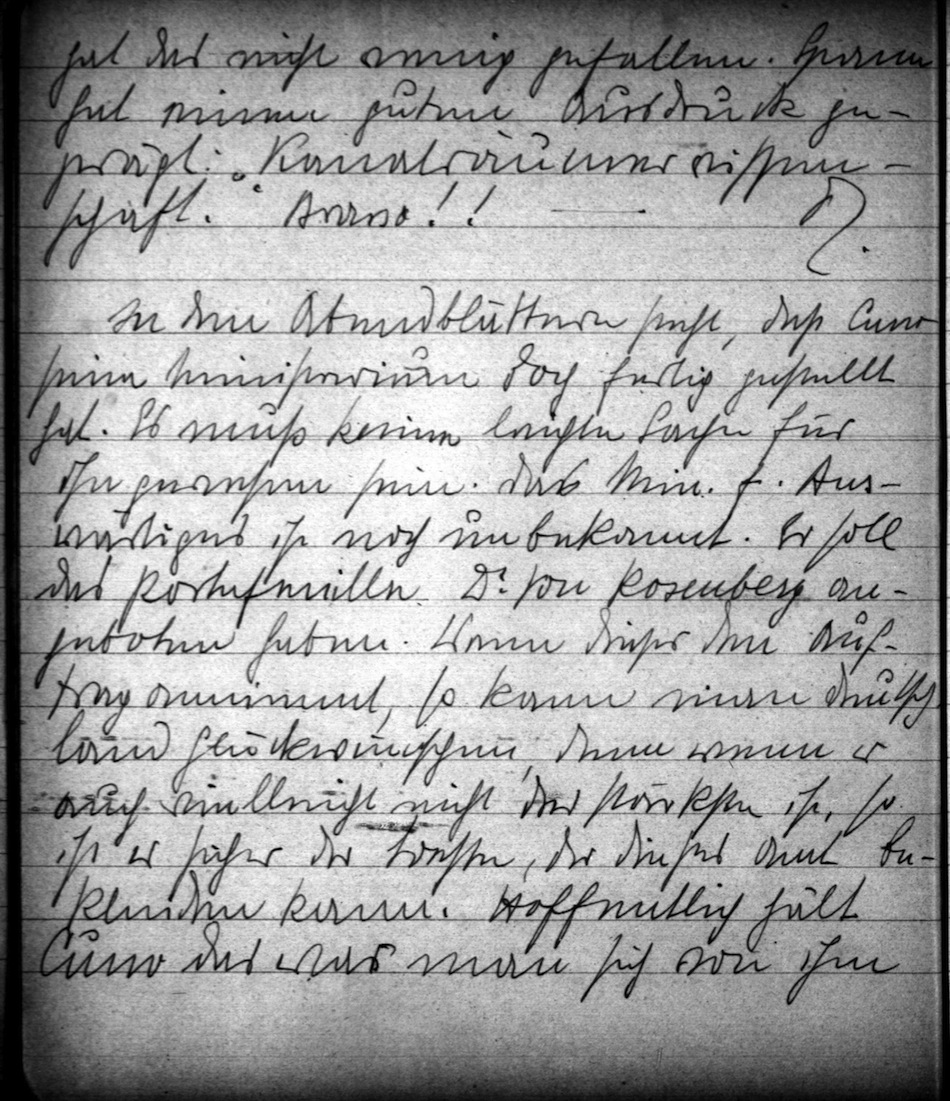 hat das nicht wenig gefallen. Spann
hat einen guten Ausdruck ge-
prägt: „Kanalräumerwissen-
schaft." Bravo!! —
In den Abendblättern steht, daß Cuno
seine Ministerium doch fertig gestellt
hat. Es muß keine leichte Sache für
ihn gewesen sein. Das Min. f. Aus-
wärtiges ist noch unbekannt. Er soll
das Portefeuille Dr. von Rosenberg an-
geboten haben. Wenn dieser den Auf-
trag annimmt, so kann man Deutsch
land Glückwünschen, denn wenn er
auch vielleicht nicht der stärkste ist, so
ist er sicher der beste, der dieses Amt be-
kleiden kann. Hoffentlich hält
Cuno das was man sich von ihm